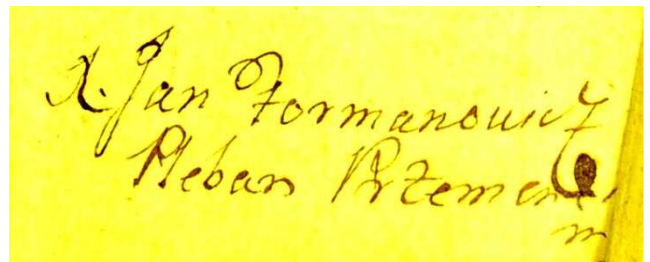 X. Jan Formanowicz
Pleban Przemen
m